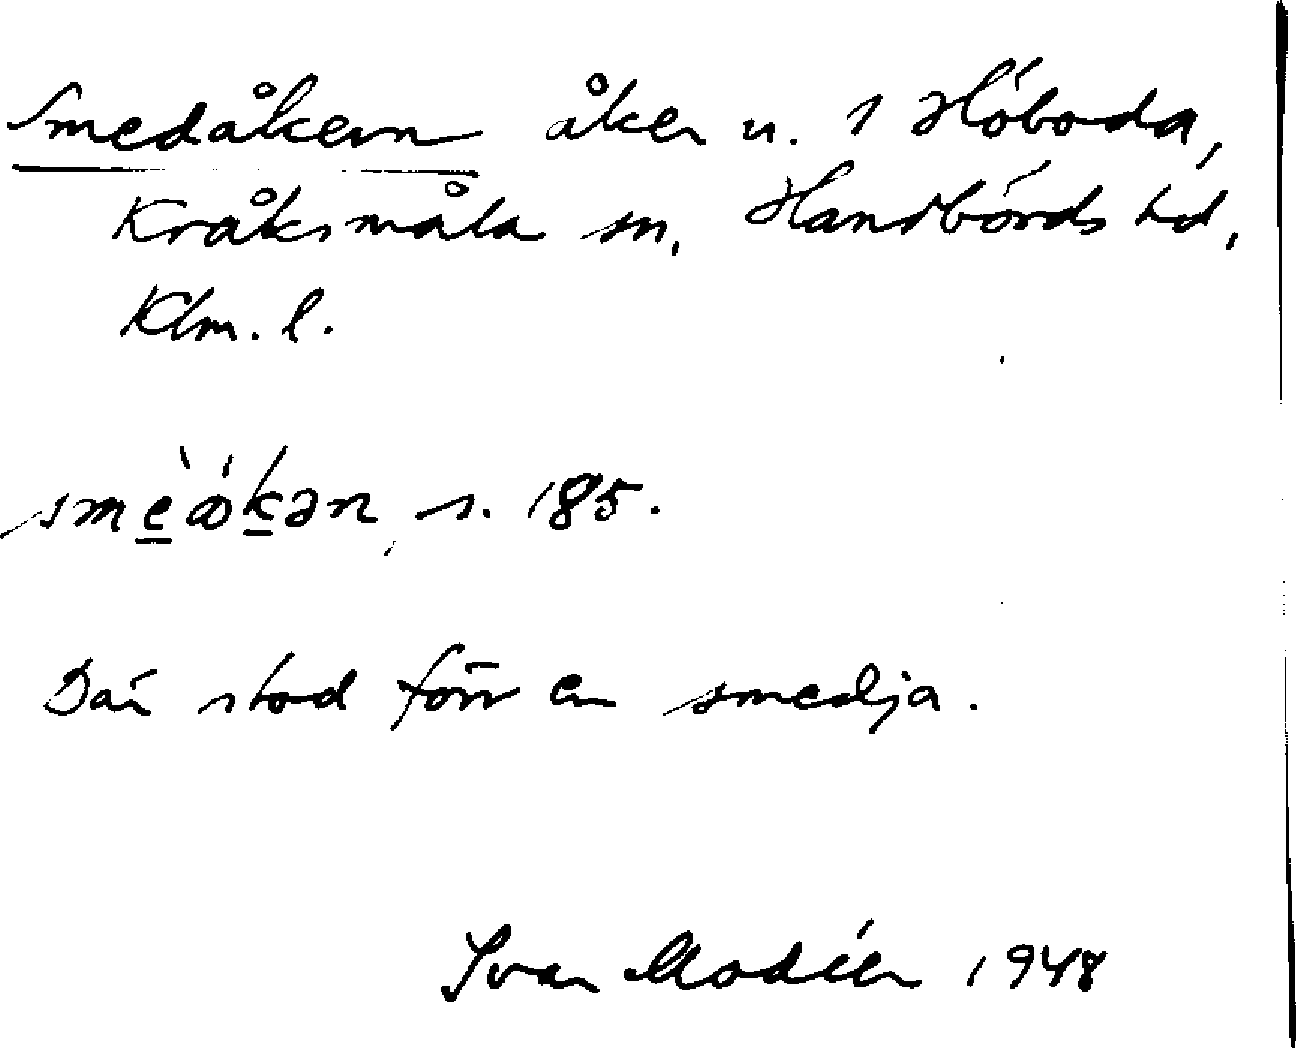 Smedåkern åker u. 1 Höboda,
Kråksmåla sn, Handbörds hd,
Klm. l.
s. 185.
Där stod förr en smedja.
Ivar Modéer 1948